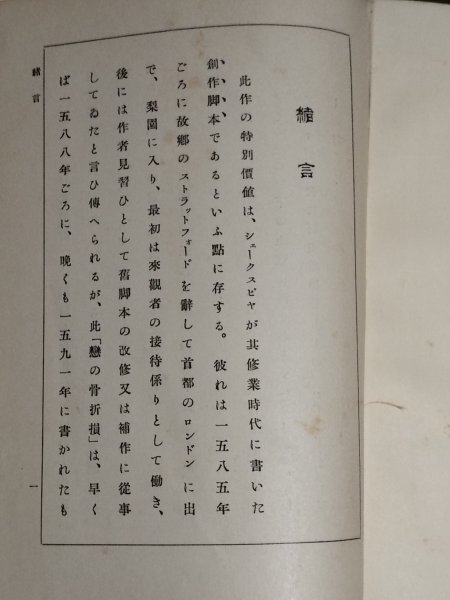 緒言
此作の特別價値は、シェークスピヤが其修業時代に書いた
創作脚本であるといふ點に存する。彼れは一五八五年
ごろに故郷のストラットフォードを辭して首都のロンドンに出
で、梨園に入り、最初は來觀者の接待係りとして働き、
後には作者見習ひとして舊脚本の改修又は補作に從事
してゐたと言ひ傳へられるが、此「戀の骨折損」は、早く
ば一五八八年ごろに、晩くも一五九一年に書かれたも
緒言
一